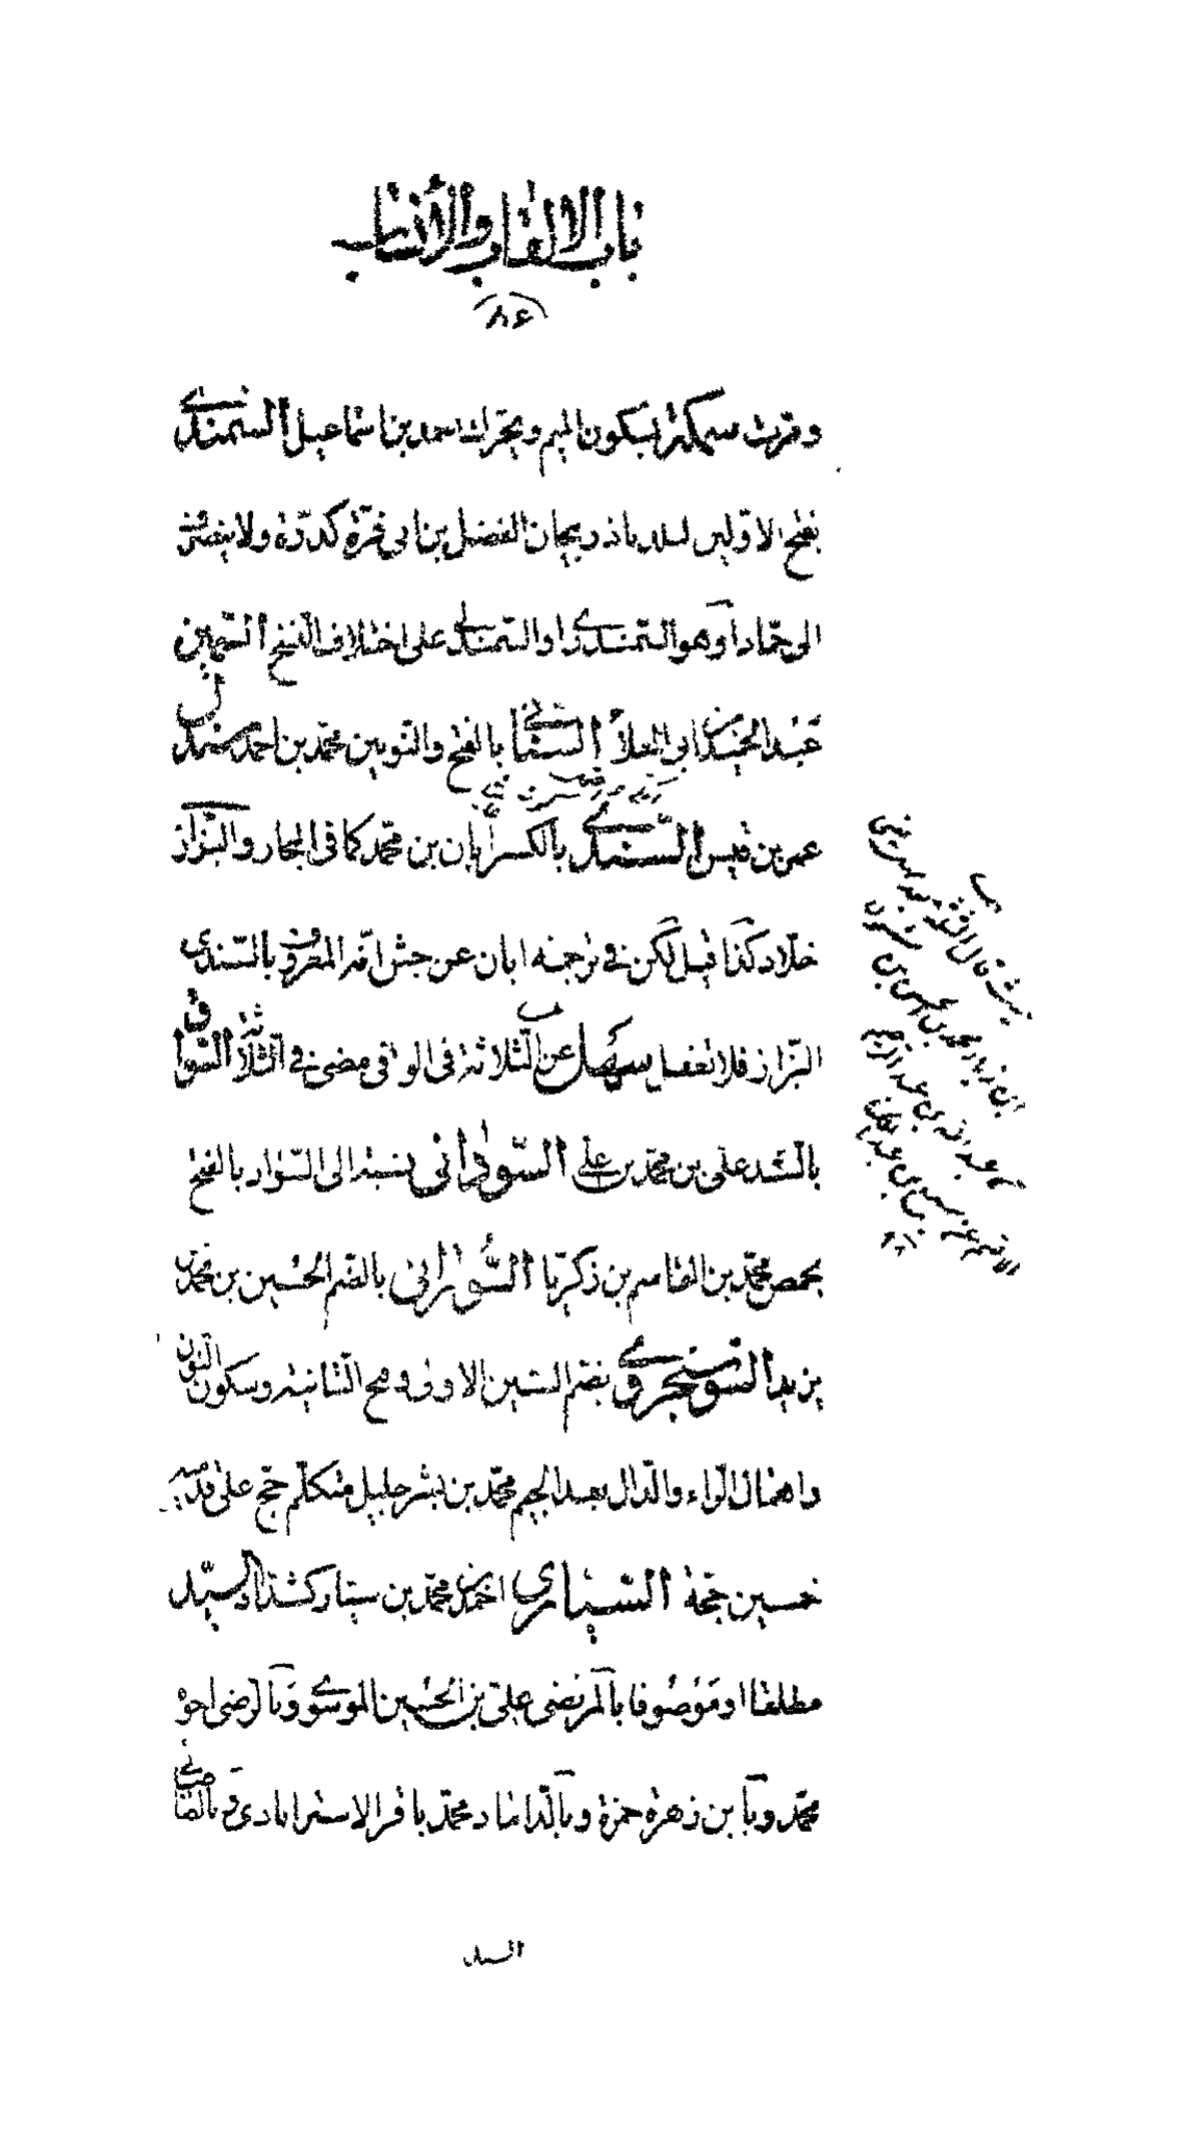 باب الالقاب والأنساب
٨٤
وقرئت سمكة بسكون الميم ويحرك احمد بن اسماعيل السمندي
بفتح الاولين لبلد باذربيجان الفضل بن ابى قرة كدرة ولا ينصرف
الى حماد او هو التمندى او التمندلى على اختلاف النسخ السمين
عبد الحميد ابن ابى العلا السنائى بالفتح والنون محمد بن احمد سندل
عمر بن قيس السندى بالكسر ابان بن محمد كما فى البحار والبزاز
خلاد كذا قيل لكن فى ترجمة ابان عن جش انه المعروف بالسندى
البزاز فلا تغفل سهل عن الثلاثة فى الواقى مضى فى الثلاثة السواق
بالشد على بن محمد بن على السودانى نسبة الى السواد بالفتح
بحمص محمد بن القاسم بن زكريا السورانى بالضم الحسين بن محمد بن
يزيد السوسنجردى بضم السين الاولى وفتح الثانية وسكون النون
واهمال الراء والدال بعد الجيم محمد بن بشر جليل متكلم حج على قدميه
خمسين حجة السيارى احمد بن محمد بن سيار كشداد السيد
مطلقا او موصوفا بالمرتضى على بن الحسين الموسوى وبالرضى اخوه
محمد وبابن زهرة حمزة وبالداماد محمد باقر الاسترابادى وبالقاضى
السيد